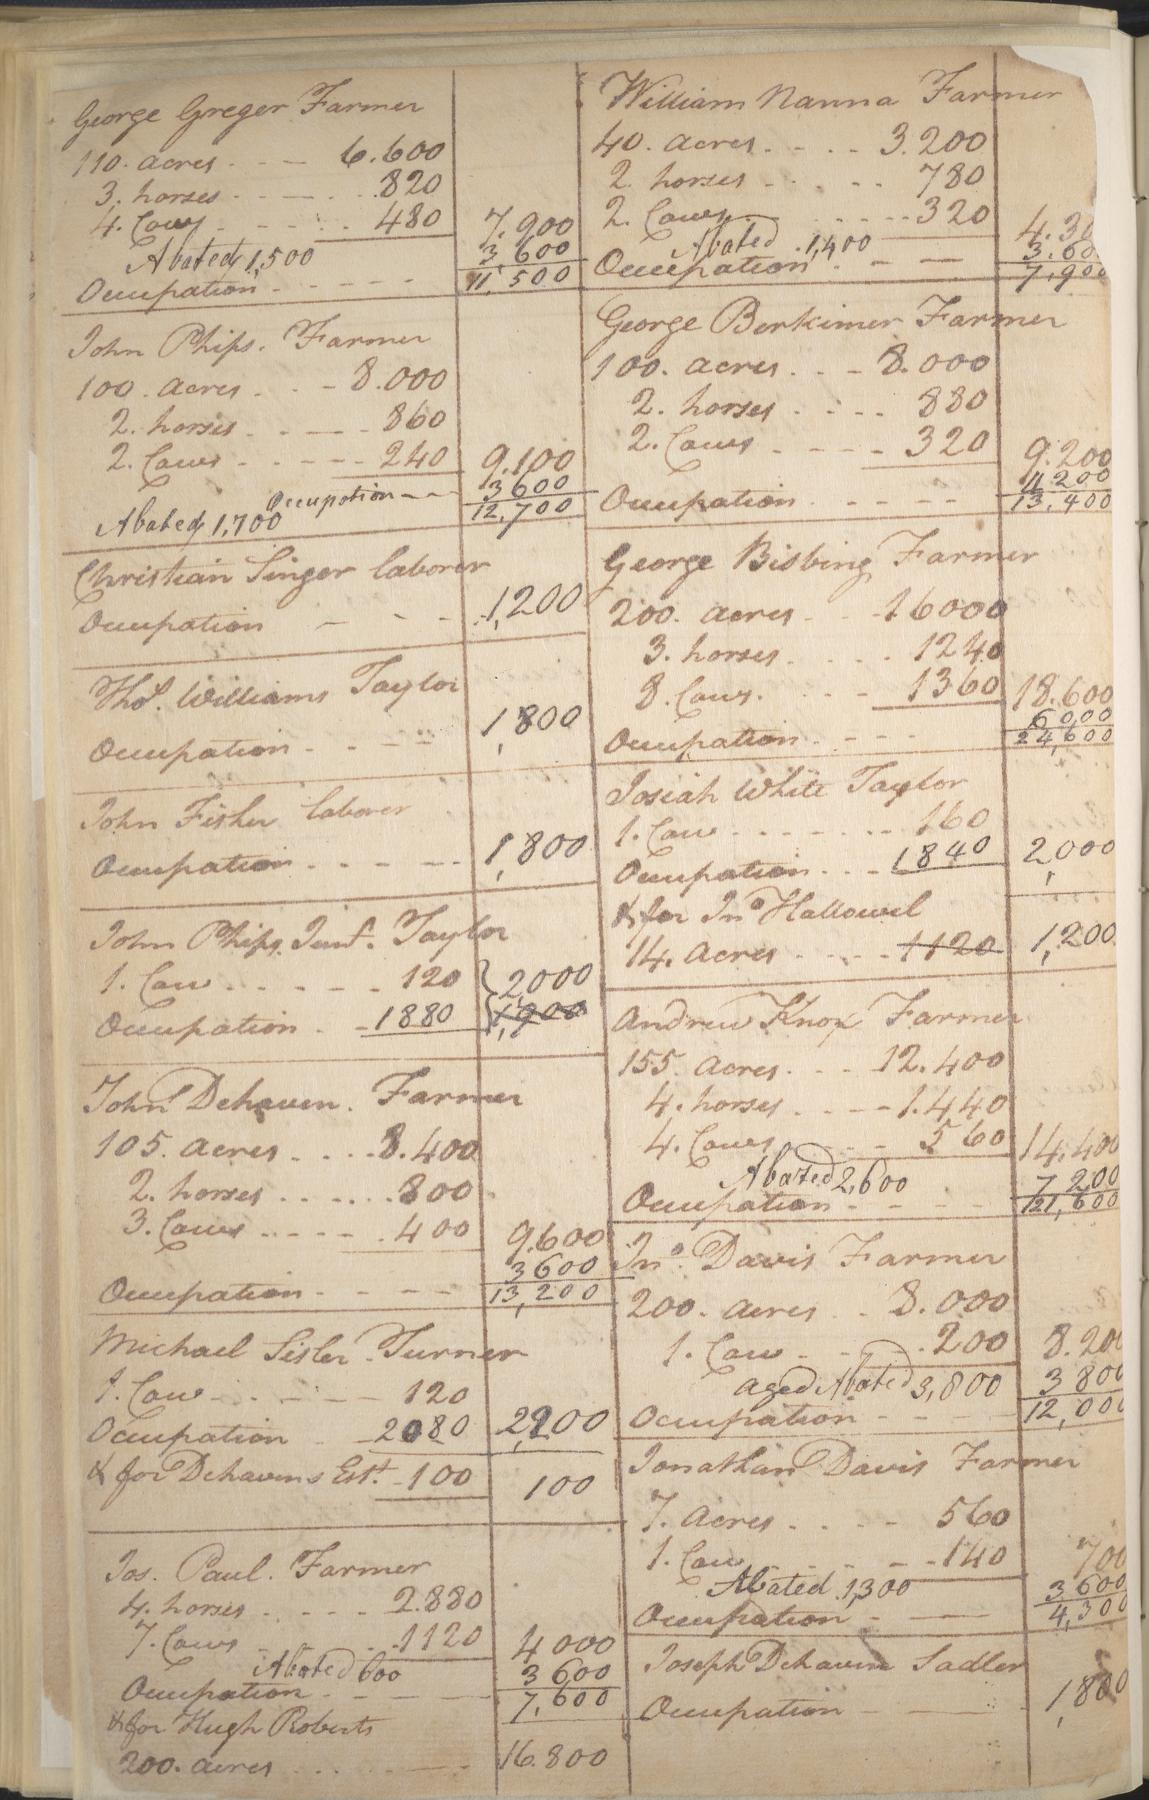 George Greger Farmer
110. acres - - - 6.600
3. horses - - - - 820
4. Cows - - - - 480 7.900
Abated 1,500 3,600
Occupation - - - - 11,500
John Phips. Farmer
100. acres - - - 8.000
2. horses - - - - 860
2. Cows - - - - - 240 9.100
Occupation - - - 3600
Abated 1,700 12,700
Christian Singer laborer
Occupation - - - - 1,200
Thos. Williams Taylor
Occupation - - - - 1,800
John Fisher laborer
Occupation - - - - - 1,800
John Phips Junr. Taylor
1. Cow - - - - - 120 2,000
Occupation - 1880 1,900
John Dehaven. Farmer
105. acres - - - - 8.400
2. horses - - - - - 800
3. Cows - - - - - 400 9.600
3600
Occupation - - - - 13,200
Michael Sisler. Turner
1. Cow - - - - 120
Occupation - 2080 2,200
& for Dehavens Estt. 100 100
Jos. Paul. Farmer
4. horses - - - - 2.880
7. Cows - - - - 1120 4000
Abated 600 3600
Occupation - - - - 7,600
& for Hugh Roberts
200. acres - - - - - 16.800
William Nanna Farmer
40. acres - - - - 3.200
2. horses - - - - 780
2. Cows - - - - - 320 4.3
Abated 1,400 3.60
Occupation - - - 7,900
George Berkimer Farmer
100. acres - - - 8.000
2. horses - - - - 880
2. Cows - - - - 320 9.200
4200
Occupation - - - - 13,400
George Bisbing Farmer
200. acres - - - 16000
3. horses - - - - 1240
8. Cows - - - - 1360 18.600
6000
Occupation - - - 24,600
Josiah White Taylor
1. Cow - - - - - - 160
Occupation - - - 1840 2,000
& for Jno. Hallowel
14. acres - - - - 1120 1,200
Andrew Knox Farmer
155. acres - - - 12.400
4. horses - - - - 1.440
4. Cows - - - 560 14.400
Abated 2,600 7200
Occupation - - - - 21,600
Jno. Davis Farmer
200. acres - 8.000
1. Cow - - - - 200 8.200
aged Abated 3,800 3800
Occupation - - - 12,000
Jonathan Davis Farmer
7. acres - - - - 560
1. Cow - - - - 140 700
Abated 1,300 3600
Occupation - - 4,300
Joseph Dehaven Sadler
Occupation - - 1,800